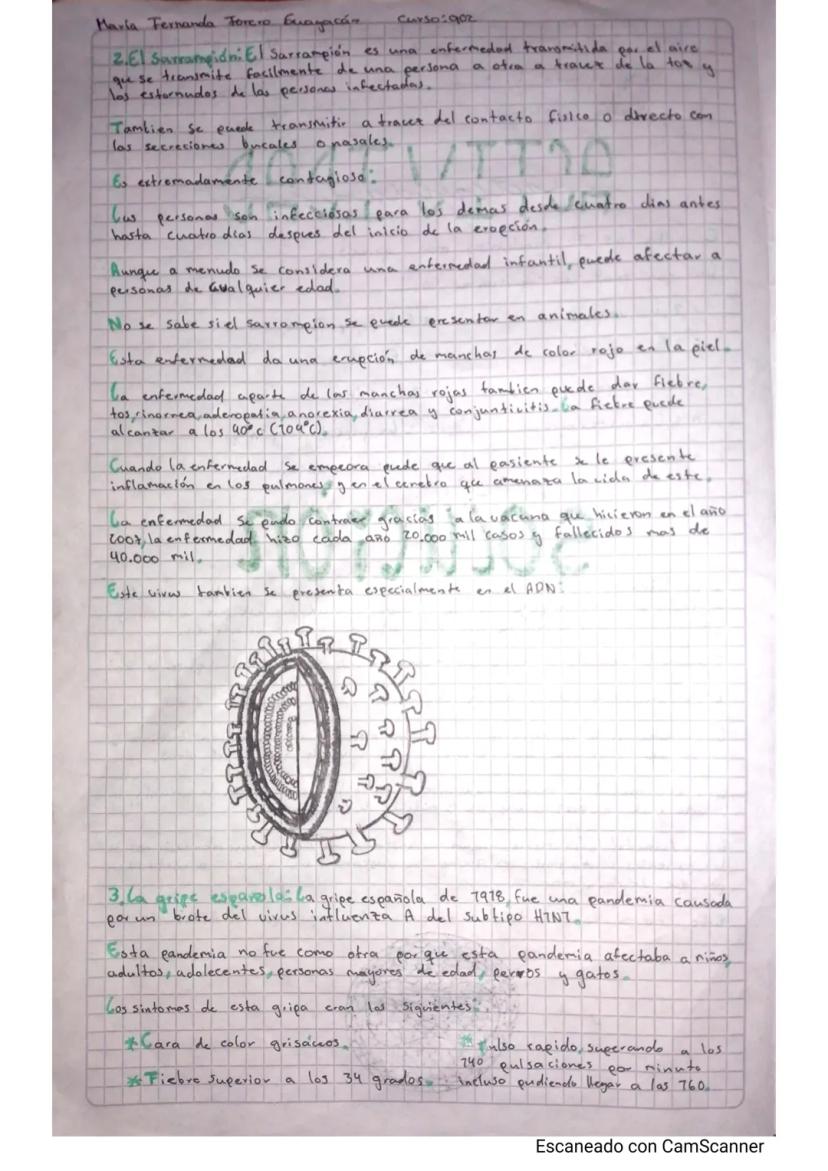 María Fernanda Forero Guayacán Curso: 902
2. El Sarrampión: El Sarrampión es una enfermedad transmitida por el aire
que se transmite facilmente de una persona a otra a travez de la tos y
los estornudos de las personas infectadas.
Tambien se puede transmitir a travez del contacto fisico o directo con
las secreciones bucales o nasales.
Es extremadamente contagioso:
Las personas son infecciosas para los demas desde cuatro dias antes
hasta cuatro dias despues del inicio de la erupción.
Aunque a menudo se considera una enfermedad infantil, puede afectar a
personas de cualquier edad.
No se sabe si el sarrompion se puede presentar en animales.
Esta enfermedad da una erupción de manchas de color rojo en la piel.
La enfermedad aparte de las manchas rojas tambien puede dar fiebre,
tos, rinorrea, aderopatia, anorexia, diarrea y conjuntivitis. La fiebre puede
alcanzar a los 40°c (104°c).
Cuando la enfermedad se empeora pude que al pasiente se le presente
inflamación en los pulmones y en el cerebro que amenaza la vida de este.
La enfermedad se pudo contraer gracias a la vacuna que hicieron en el año
2007, la enfermedad hizo cada año 20.000 mil casos y fallecidos mas de
40.000 mil.
Este virus tambien se presenta especialmente en el ADN:
3. La gripe española: La gripe española de 1918, fue una pandemia causada
por un brote del virus influenza A del subtipo H1N1.
Esta pandemia no fue como otra por que esta pandemia afectaba a niños,
adultos, adolecentes, personas mayores de edad, perros y gatos.
Los sintomas de esta gripa eran los siguientes:
*Cara de color grisáceos.
*Fiebre superior a los 39 grados.
*Pulso rapido, superando a los
140 pulsaciones por minuto
incluso pudiendo llegar a las 160.
Escaneado con CamScanner